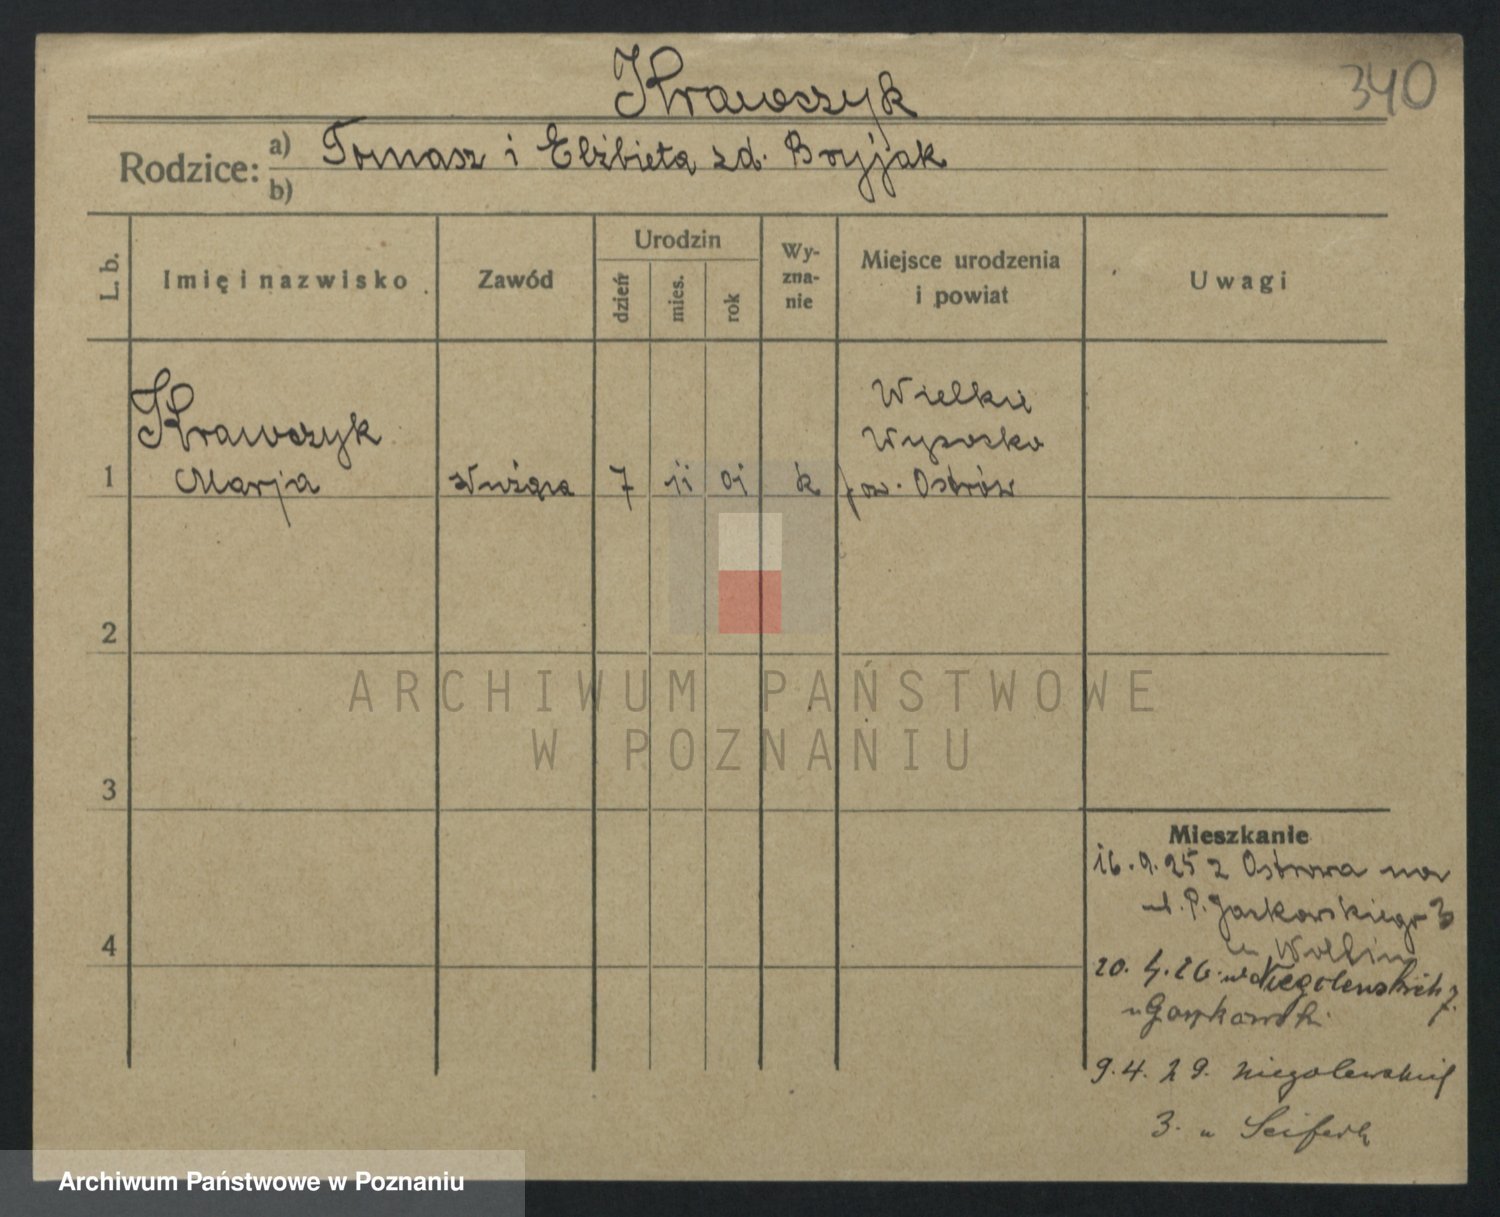 Krawczyk
340
Rodzice: a) Tomasz i Elżbieta zd. Bryjak
b)
L. b.
Imię i nazwisko
Zawód
Urodzin
dzień
mies.
rok
Wy-
zna-
nie
Miejsce urodzenia
i powiat
Uwagi
Krawczyk
Wielkie
Wysocko
1 Marja służąca 7 11 01 k pow. Ostrów
2
ARCHIWUM PAŃSTWOWE
W POZNANIU
3
Mieszkanie
16.9.25 z Ostrowa na
ul. P. Jackowskiego 3
u
4
20. 4. 26. ul. Niegolewskich 7.
u
9. 4. 29. Niegolewskich
3. u Seifert
Archiwum Państwowe w Poznaniu